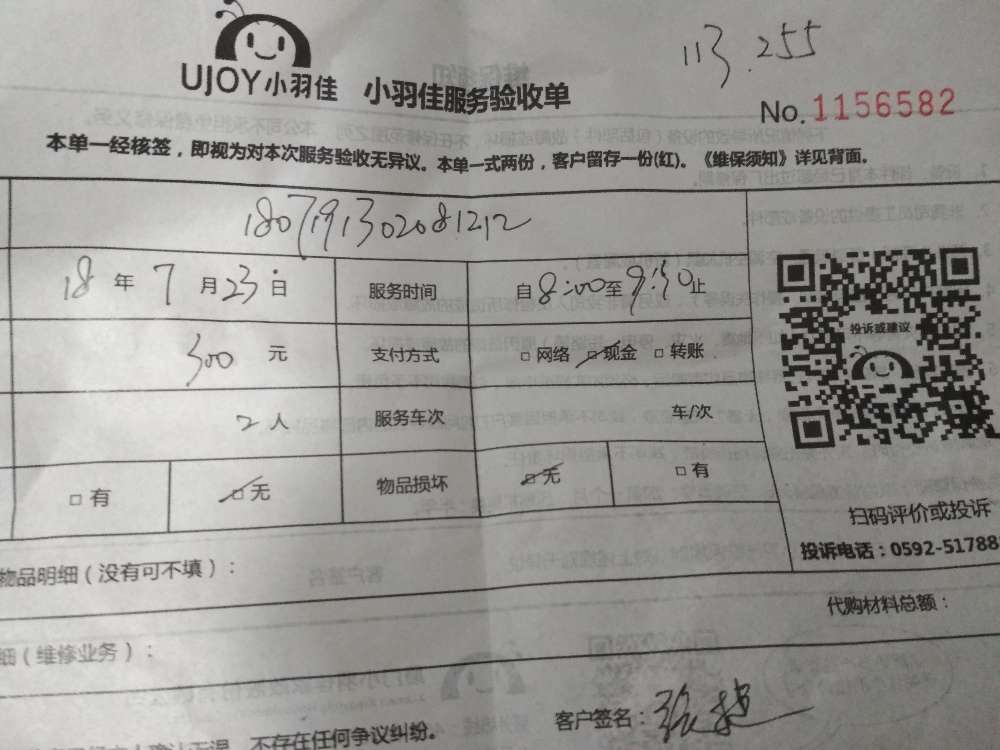 113.255
UJOY小羽佳 小羽佳服务验收单
No.1156582
本单一经核签，即视为对本次服务验收无异议。本单一式两份，客户留存一份(红)。《维保须知》详见背面。
1807191302081212
18 年 7 月 23 日 服务时间 自 8:00 至 9:50 止
300 元 支付方式 □ 网络 □ 现金 □ 转账
投诉或建议
2 人 服务车次 车/次
□ 有 □ 无 物品损坏 □ 无 □ 有
扫码评价或投诉
物品明细（没有可不填）： 投诉电话：0592-517888
代购材料总额：
细（维修业务）：
客户签名：张
不存在任何争议纠纷。